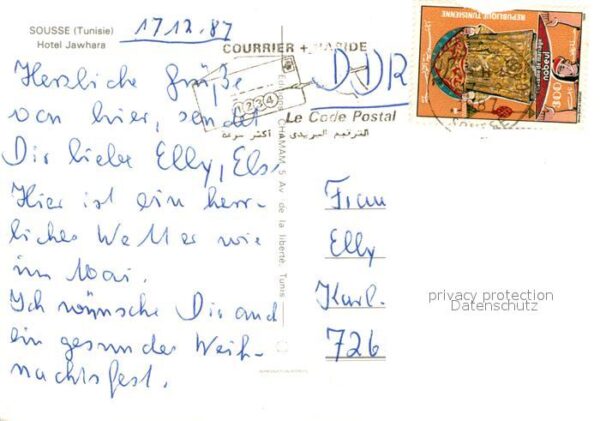 SOUSSE (Tunisie)
Hotel Jawhara
17.12.87
Herzliche Grüße
von hier, sendet
Dir liebe Elly, Els.
Hier ist ein herr-
liches Wetter wie
im Mai.
Ich wünsche Dir auch
ein gesundes Weih-
nachtsfest.
COURRIER + RAPIDE
1234
Le Code Postal
الترقيم البريدي أكثر سرعة
CHAMAM, 5 Av. de la liberté, Tunis
REPUBLIQUE TUNISIENNE
nabeul
300
DDR
Frau
Elly
Karl.
726
privacy protection
Datenschutz